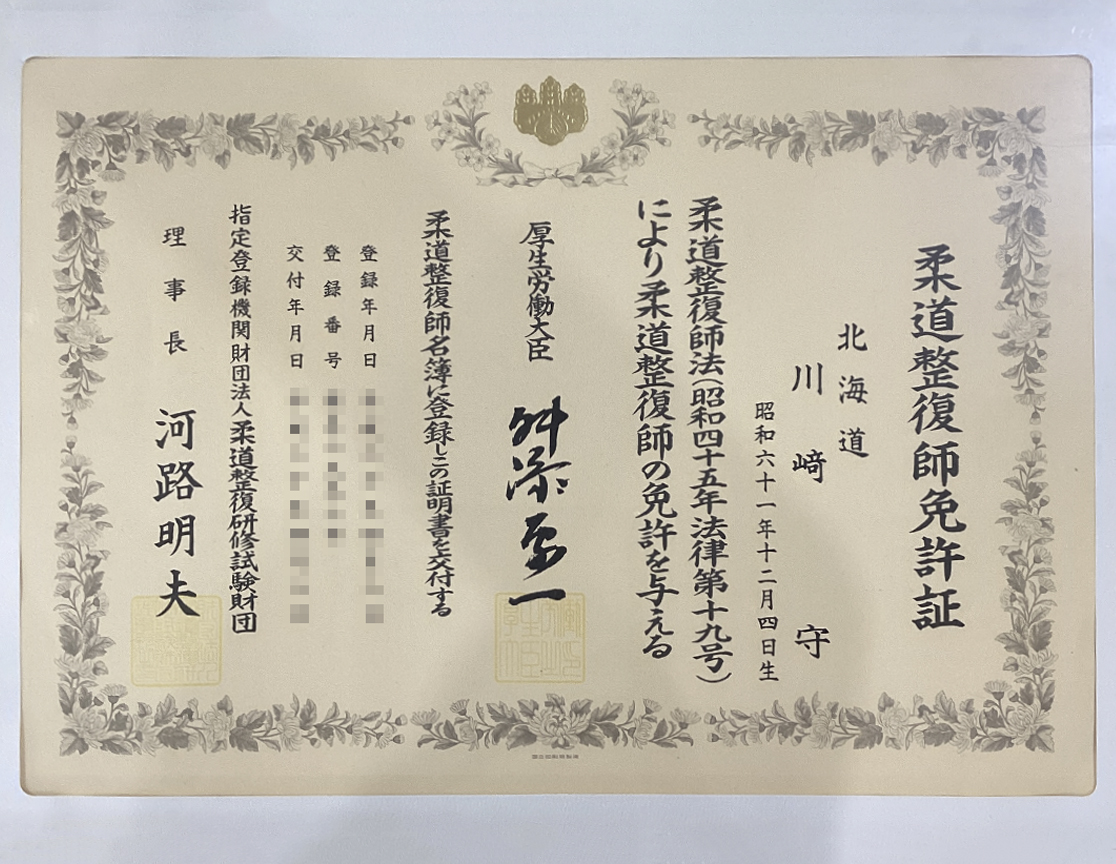 柔道整復師免許証
北海道
川﨑 守
昭和六十一年十二月四日生
柔道整復師法(昭和四十五年法律第十九号)
により柔道整復師の免許を与える
厚生労働大臣 舛添要一
柔道整復師名簿に登録しこの証明書を交付する
登録年月日
登録番号
交付年月日
指定登録機関財団法人柔道整復研修試験財団
理事長 河路明夫